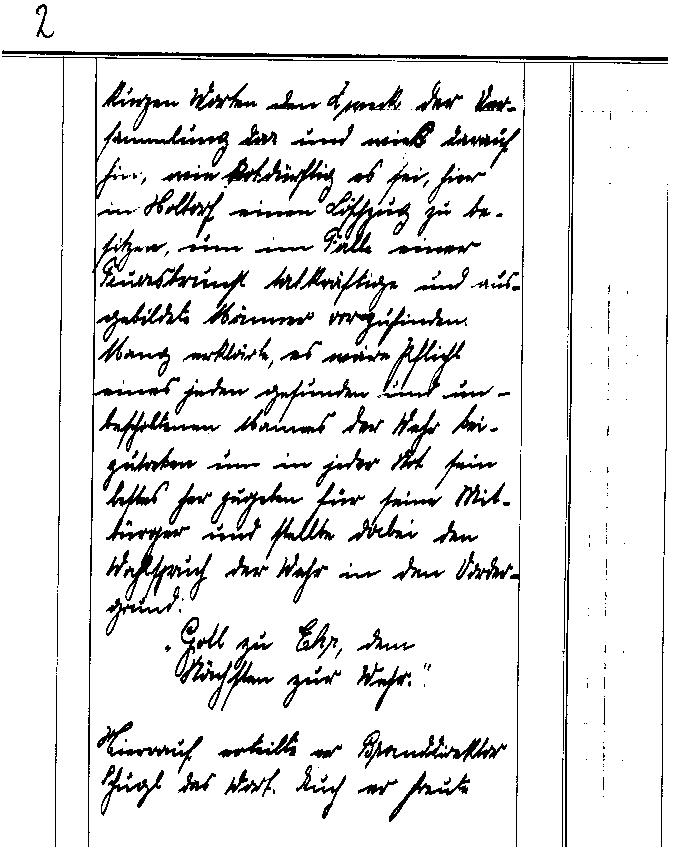 2
kurzen Worten den Zweck der Ver-
sammlung dar und wies darauf
hin, wie notdürftig es sei, hier
in Holtorf einen Löschzug zu be-
sitzen, um im Falle einer
Feuersbrunst tatkräftige und aus-
gebildete Männer vorzufinden.
Mang erklärte, es wäre Pflicht
eines jeden gesunden und un-
bescholtenen Mannes der Wehr bei-
zutreten um in jeder Not sein
bestes her zugeben für seine Mit-
bürger und stellte dabei den
Wahlspruch der Wehr in den Vorder-
grund:
"Gott zu Ehr, dem
Nächsten zur Wehr."
Hierrauf erteilte er Branddirektor
das Wort. Auch er freute